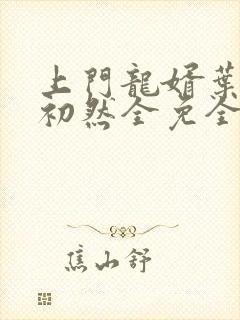 上門龍婿葉
初然全免全
焦山舒